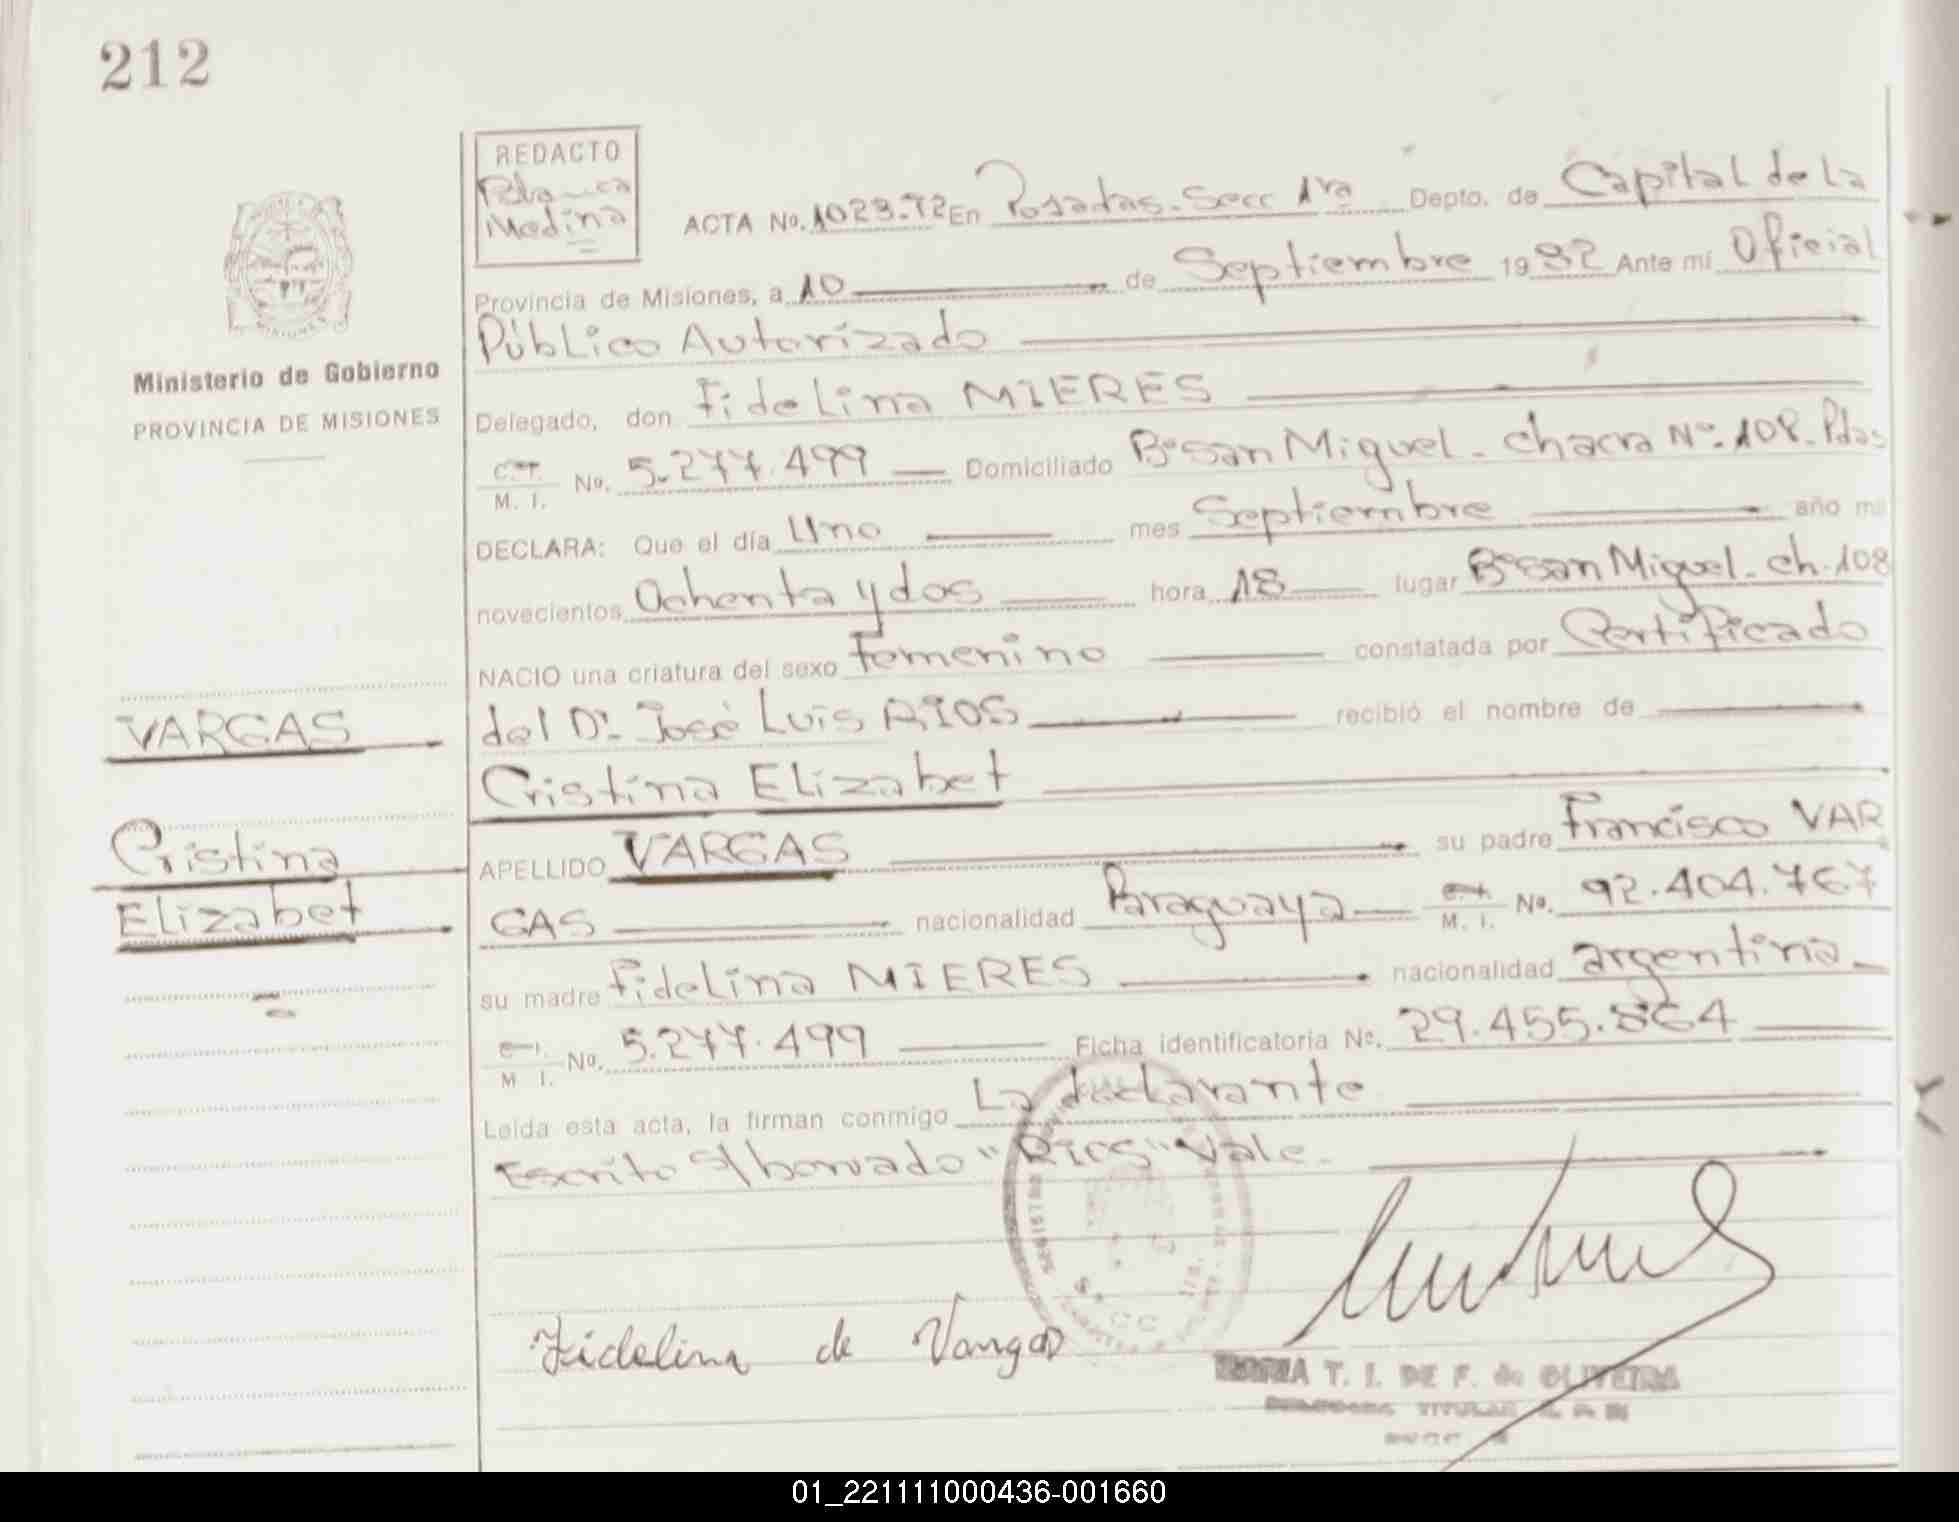 212
REDACTO
Medina
ACTA No. 1023-T2 En Posadas-Secc 1ra Depto. de Capital de la
Provincia de Misiones, a 10 de Septiembre 1982 Ante mí Oficial
Público Autorizado
MISIONES
Ministerio de Gobierno
PROVINCIA DE MISIONES
Delegado, don Fidelina MIERES
C.I. M. I. No. 5.277.499 Domiciliado Bº San Miguel - chacra Nº 108. Pdas
DECLARA: Que el día Uno mes Septiembre año mil
novecientos Ochenta y dos hora 18 lugar Bº San Miguel - ch. 108
NACIO una criatura del sexo Femenino constatada por Certificado
VARGAS
del Dr. José Luis RIOS recibió el nombre de
Cristina Elizabet
Cristina
Elizabet
APELLIDO VARGAS su padre Francisco VAR
GAS nacionalidad Paraguaya M. I. No. 92.404.767
su madre Fidelina MIERES nacionalidad argentina
M I. No. 5.277.499 Ficha identificatoria No. 29.455.864
Leída esta acta, la firman conmigo La declarante
Escrito s/ borrado "Rios" Vale.
Fidelina de Vargas
T. I. DE F. de OLIVEIRA
TITULAR
SECC
01_221111000436-001660